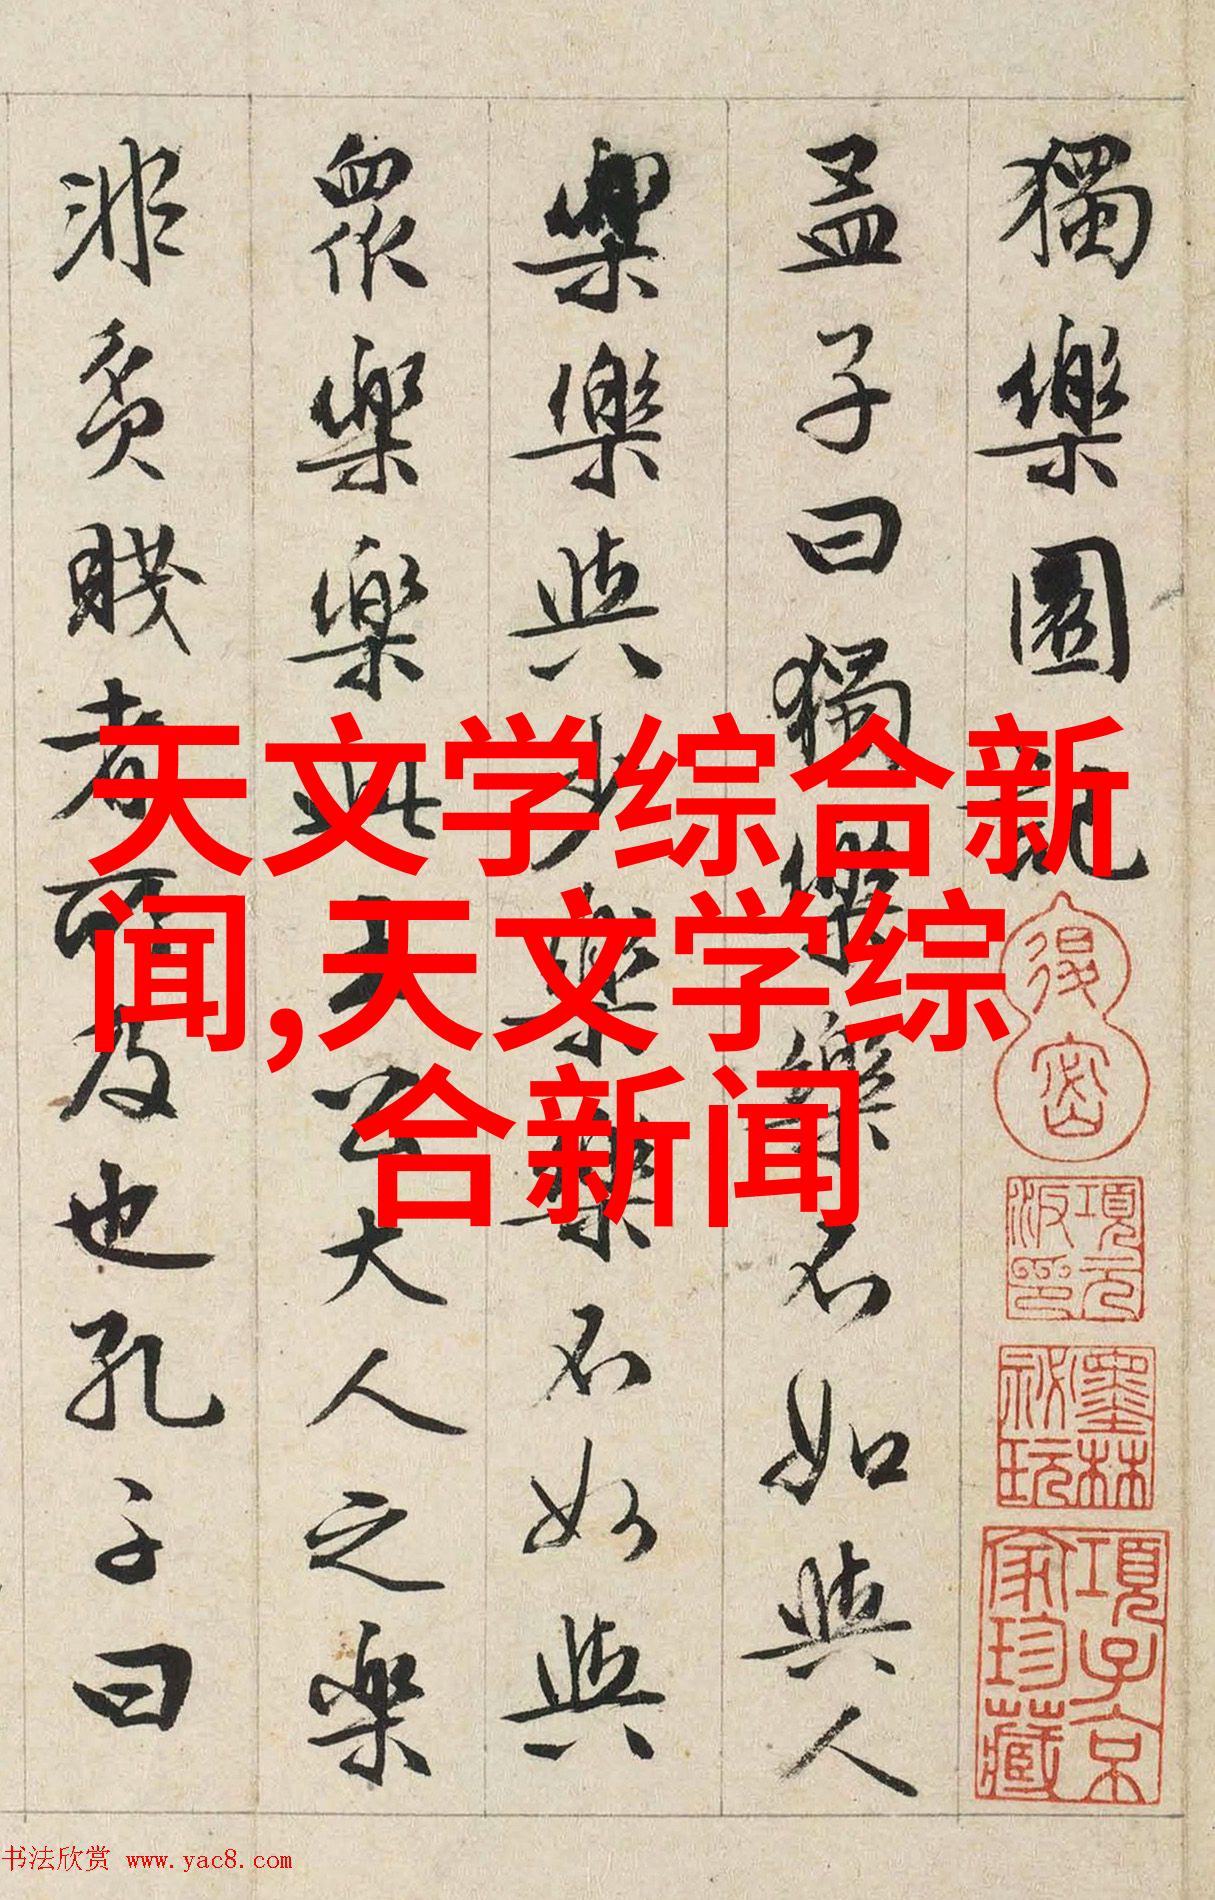 獨樂園記
孟子曰獨樂樂不如與人
樂樂與少樂樂不如與
眾樂樂此王公大人之樂
非貧賤者所及也孔子曰
天文学综合新
闻,天文学综
合新闻
項元
汳印
墨林
祕玩
項子京
家珍藏
书法欣赏 www.yac8.com